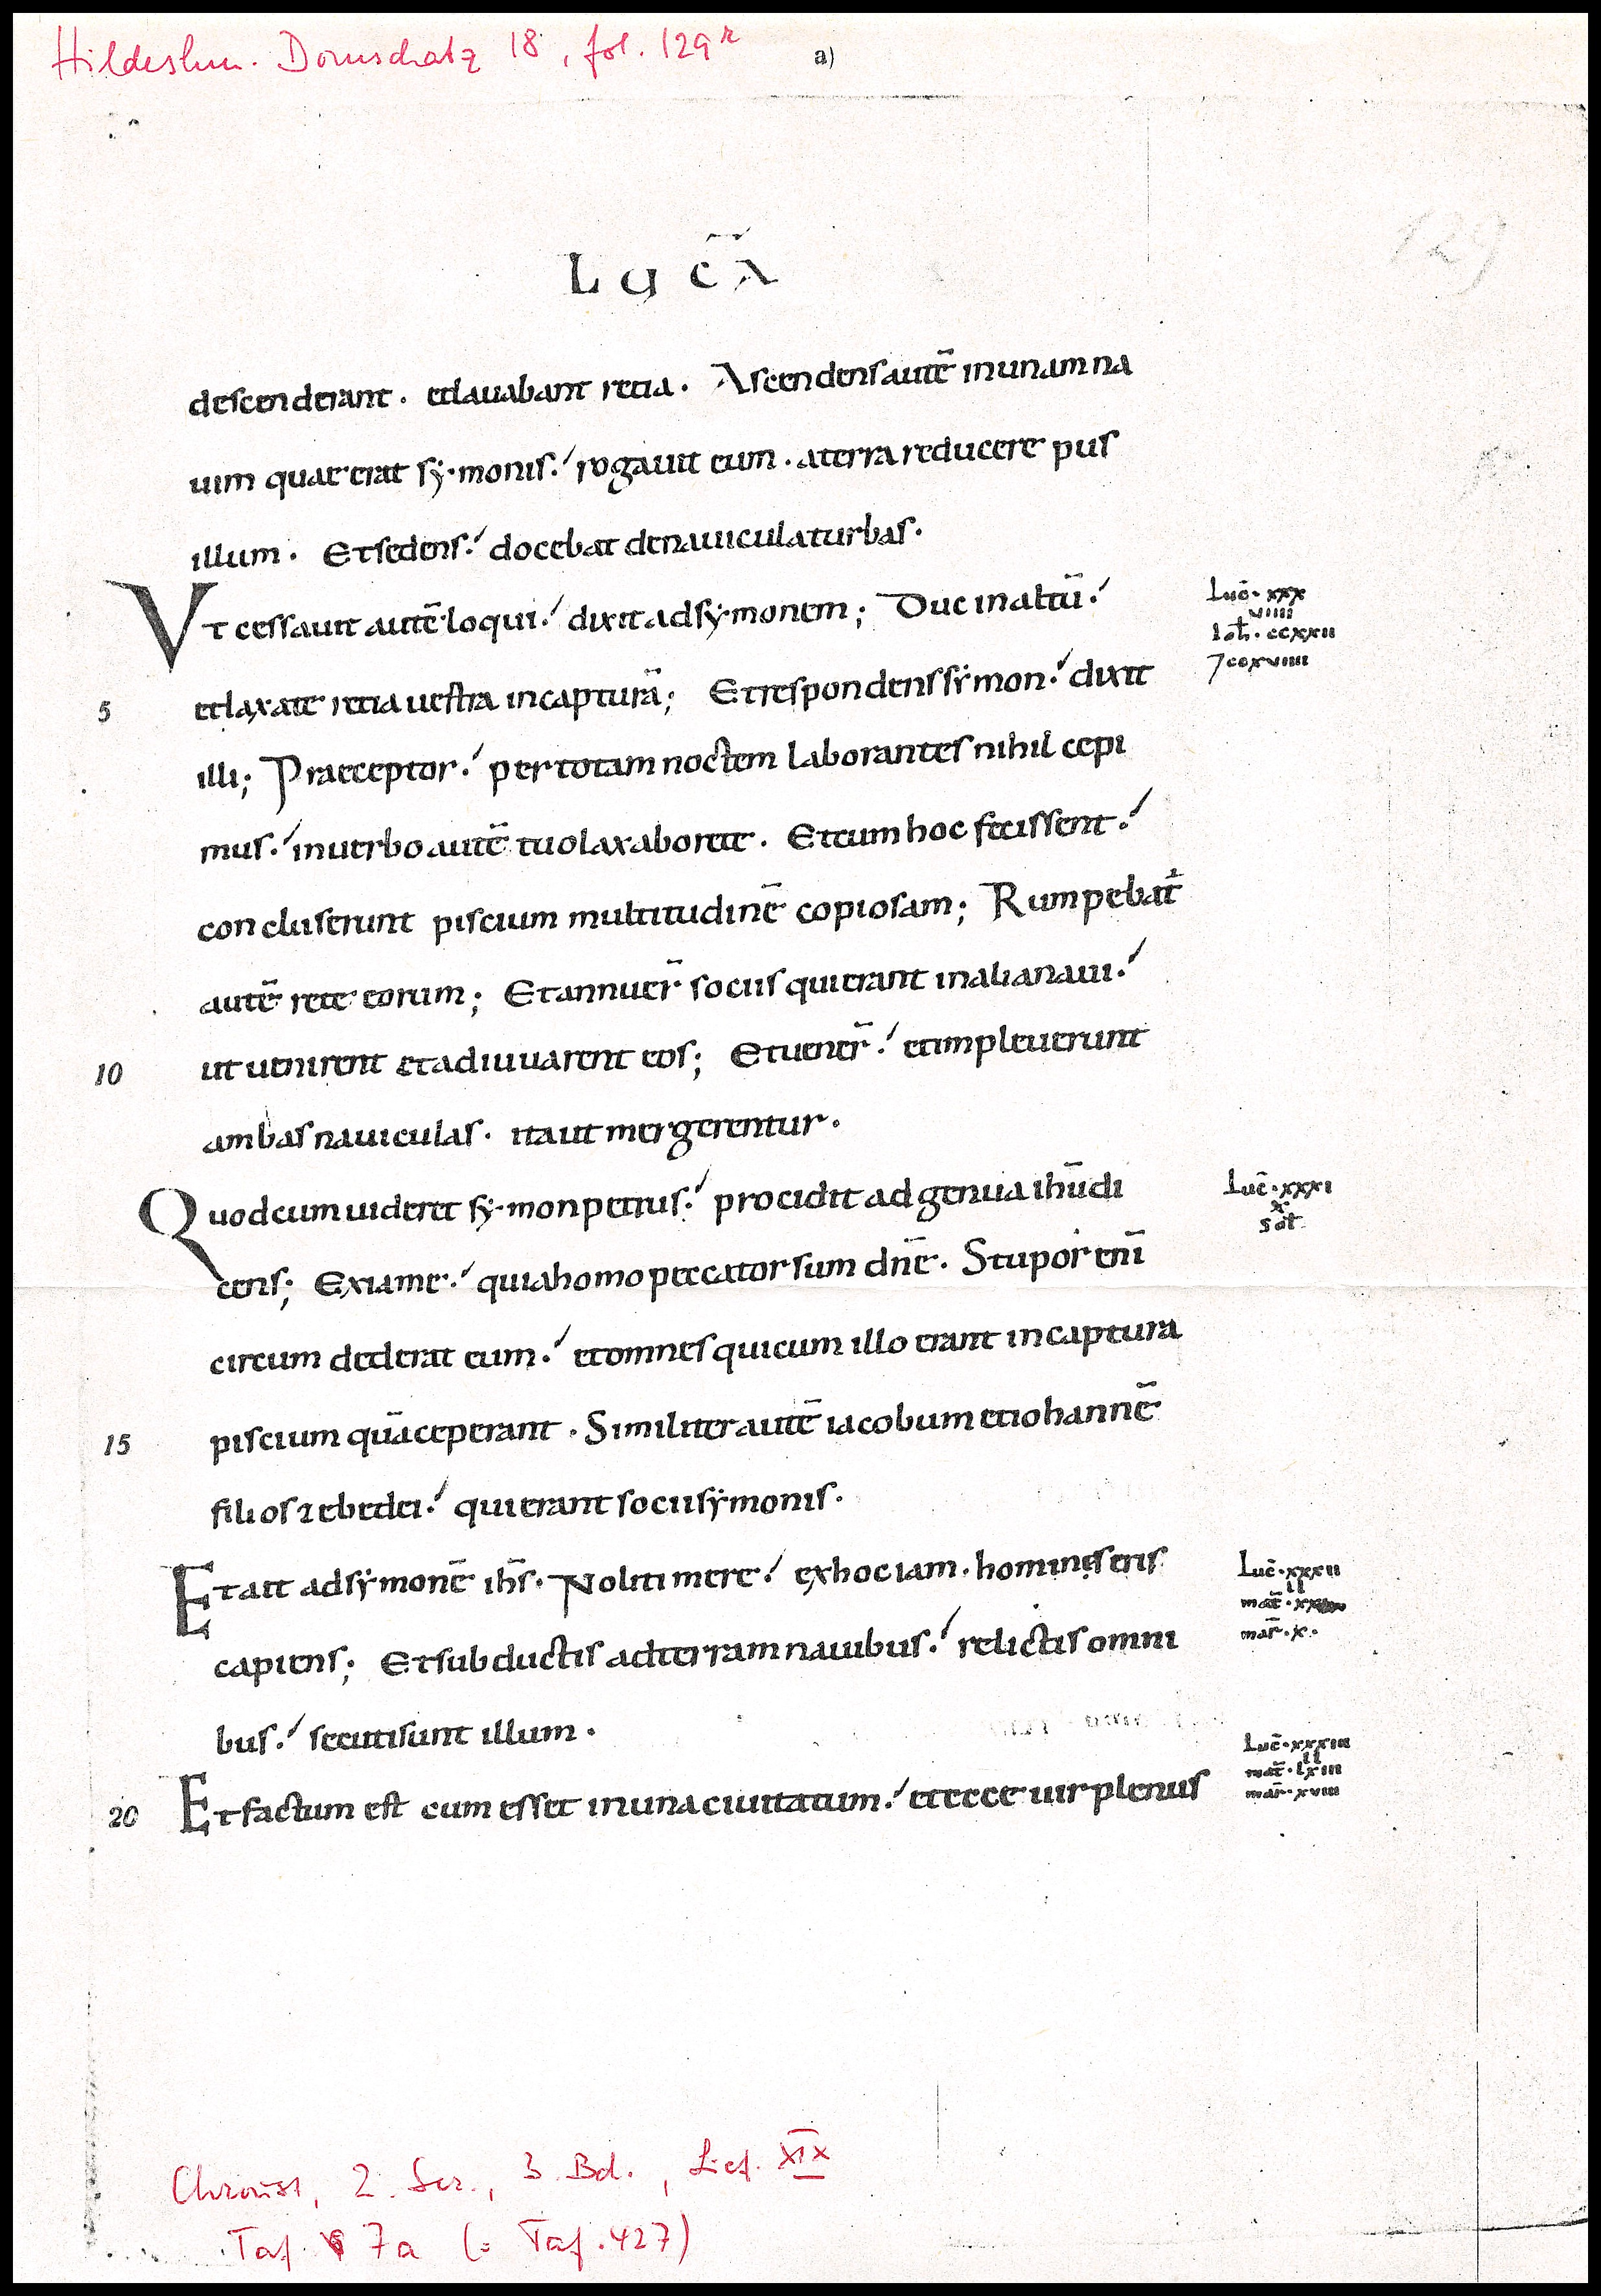 Hildeshm. Domschatz 18, fol. 129r
a)
129
LUCĀ
descenderant. et lauabant retia. Ascendens autē in unam na
uim quae erat sẏmonis. rogauit eum. a terra reducere pus
illum. Et sedens. docebat de nauicula turbas.
Vt cessauit autē loqui. dixit ad sẏmonem; Duc in altū.
Luc̄. xxx
viiii
Ioh̄. ccxxii
7 ccxviiii
5 et laxate retia uestra in capturā; Et respondens sẏmon. dixit
illi; Praeceptor. per totam noctem laborantes nihil cepi
mus. in uerbo autē tuo laxabo rete. Et cum hoc fecissent.
concluserunt piscium multitudinē copiosam; Rumpebat̄
autē rete eorum; Et annuer̄ sociis qui erant in alia naui.
10 ut uenirent et adiuuarent eos; Et uener̄. et impleuerunt
ambas nauiculas. ita ut mergerentur.
Quod cum uideret sẏmon petrus. procidit ad genua ihū di
Luc̄. xxxi
x
sol̄
cens; Exi a me. quia homo peccator sum dn̄e. Stupor enī
circum dederat eum. et omnes qui cum illo erant in captura
15 piscium quā ceperant. Similiter autē iacobum et iohannē
filios zebedei. qui erant socii sẏmonis.
Et ait ad sẏmonē ihs̄. Noli timere. ex hoc iam. homines eris
Luc̄. xxxii
ii
mar̄. x.
capiens; Et subductis ad terram nauibus. relictis omni
bus. secuti sunt illum.
Luc̄. xxxiii
ii
mat̄. lxiii
mar̄. xviii
20 Et factum est cum esset in una ciuitatum. et ecce uir plenus
Chroust, 2. Ser., 3 Bd., Lief. XIX
Taf. 7a (= Taf. 427)